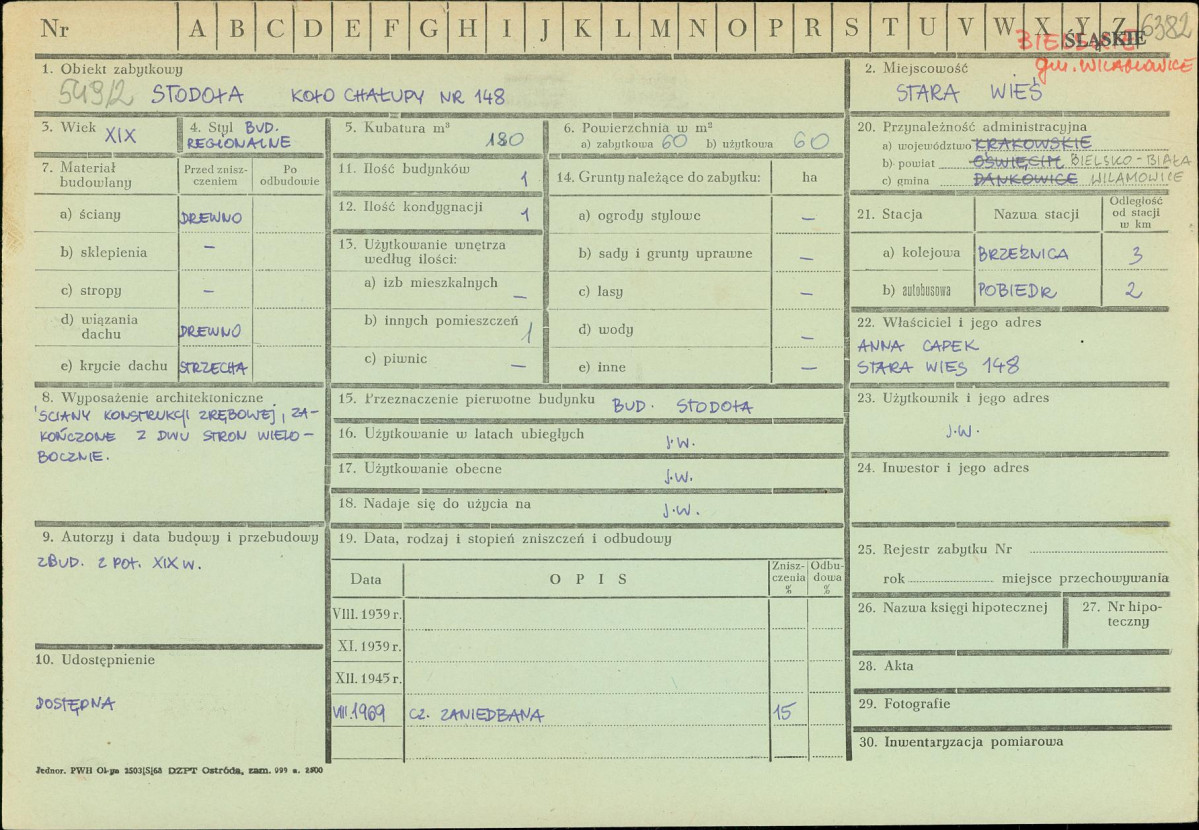 Nr A B C D E F G H I J K L M N O P R S T U V W X Y Z 6382
BIELSKIE ŚLĄSKIE
gm. WILAMOWICE
1. Obiekt zabytkowy
549/2 STODOŁA KOŁO CHAŁUPY NR 148
2. Miejscowość
STARA WIEŚ
3. Wiek XIX
4. Styl BUD.
REGIONALNE
5. Kubatura m³
180
6. Powierzchnia w m²
a) zabytkowa 60 b) użytkowa 60
20. Przynależność administracyjna
a) województwo KRAKOWSKIE
b) powiat OŚWIĘCIM BIELSKO-BIAŁA
c) gmina DANKOWICE WILAMOWICE
7. Materiał
budowlany
Przed znisz-
czeniem
Po
odbudowie
a) ściany DREWNO
b) sklepienia –
c) stropy –
d) wiązania
dachu DREWNO
e) krycie dachu STRZECHA
11. Ilość budynków 1
12. Ilość kondygnacji 1
13. Użytkowanie wnętrza
według ilości:
a) izb mieszkalnych –
b) innych pomieszczeń 1
c) piwnic –
14. Grunty należące do zabytku: ha
a) ogrody stylowe –
b) sady i grunty uprawne –
c) lasy –
d) wody –
e) inne –
21. Stacja Nazwa stacji
Odległość
od stacji
w km
a) kolejowa BRZEŹNICA 3
b) autobusowa POBIEDR 2
22. Właściciel i jego adres
ANNA CAPEK
STARA WIES 148
8. Wyposażenie architektoniczne
ŚCIANY KONSTRUKCJI ZRĘBOWEJ, ZA-
KOŃCZONE Z DWU STRON WIELO-
BOCZNIE.
15. Przeznaczenie pierwotne budynku BUD. STODOŁA
16. Użytkowanie w latach ubiegłych J.W.
17. Użytkowanie obecne J.W.
18. Nadaje się do użycia na J.W.
23. Użytkownik i jego adres
J.W.
24. Inwestor i jego adres
9. Autorzy i data budowy i przebudowy
ZBUD. Z POŁ. XIX W.
19. Data, rodzaj i stopień zniszczeń i odbudowy
Data OPIS
Znisz-
czenia
%
Odbu-
dowa
%
VIII. 1939 r.
XI. 1939 r.
XII. 1945 r.
VIII. 1969 CZ. ZANIEDBANA 15
25. Rejestr zabytku Nr
rok miejsce przechowywania
26. Nazwa księgi hipotecznej
27. Nr hipo-
teczny
10. Udostępnienie
DOSTĘPNA
28. Akta
29. Fotografie
30. Inwentaryzacja pomiarowa
Jednor. PWH Ol-yn 1503/S/68 DZPT Ostróda, zam. 999 n. 2500